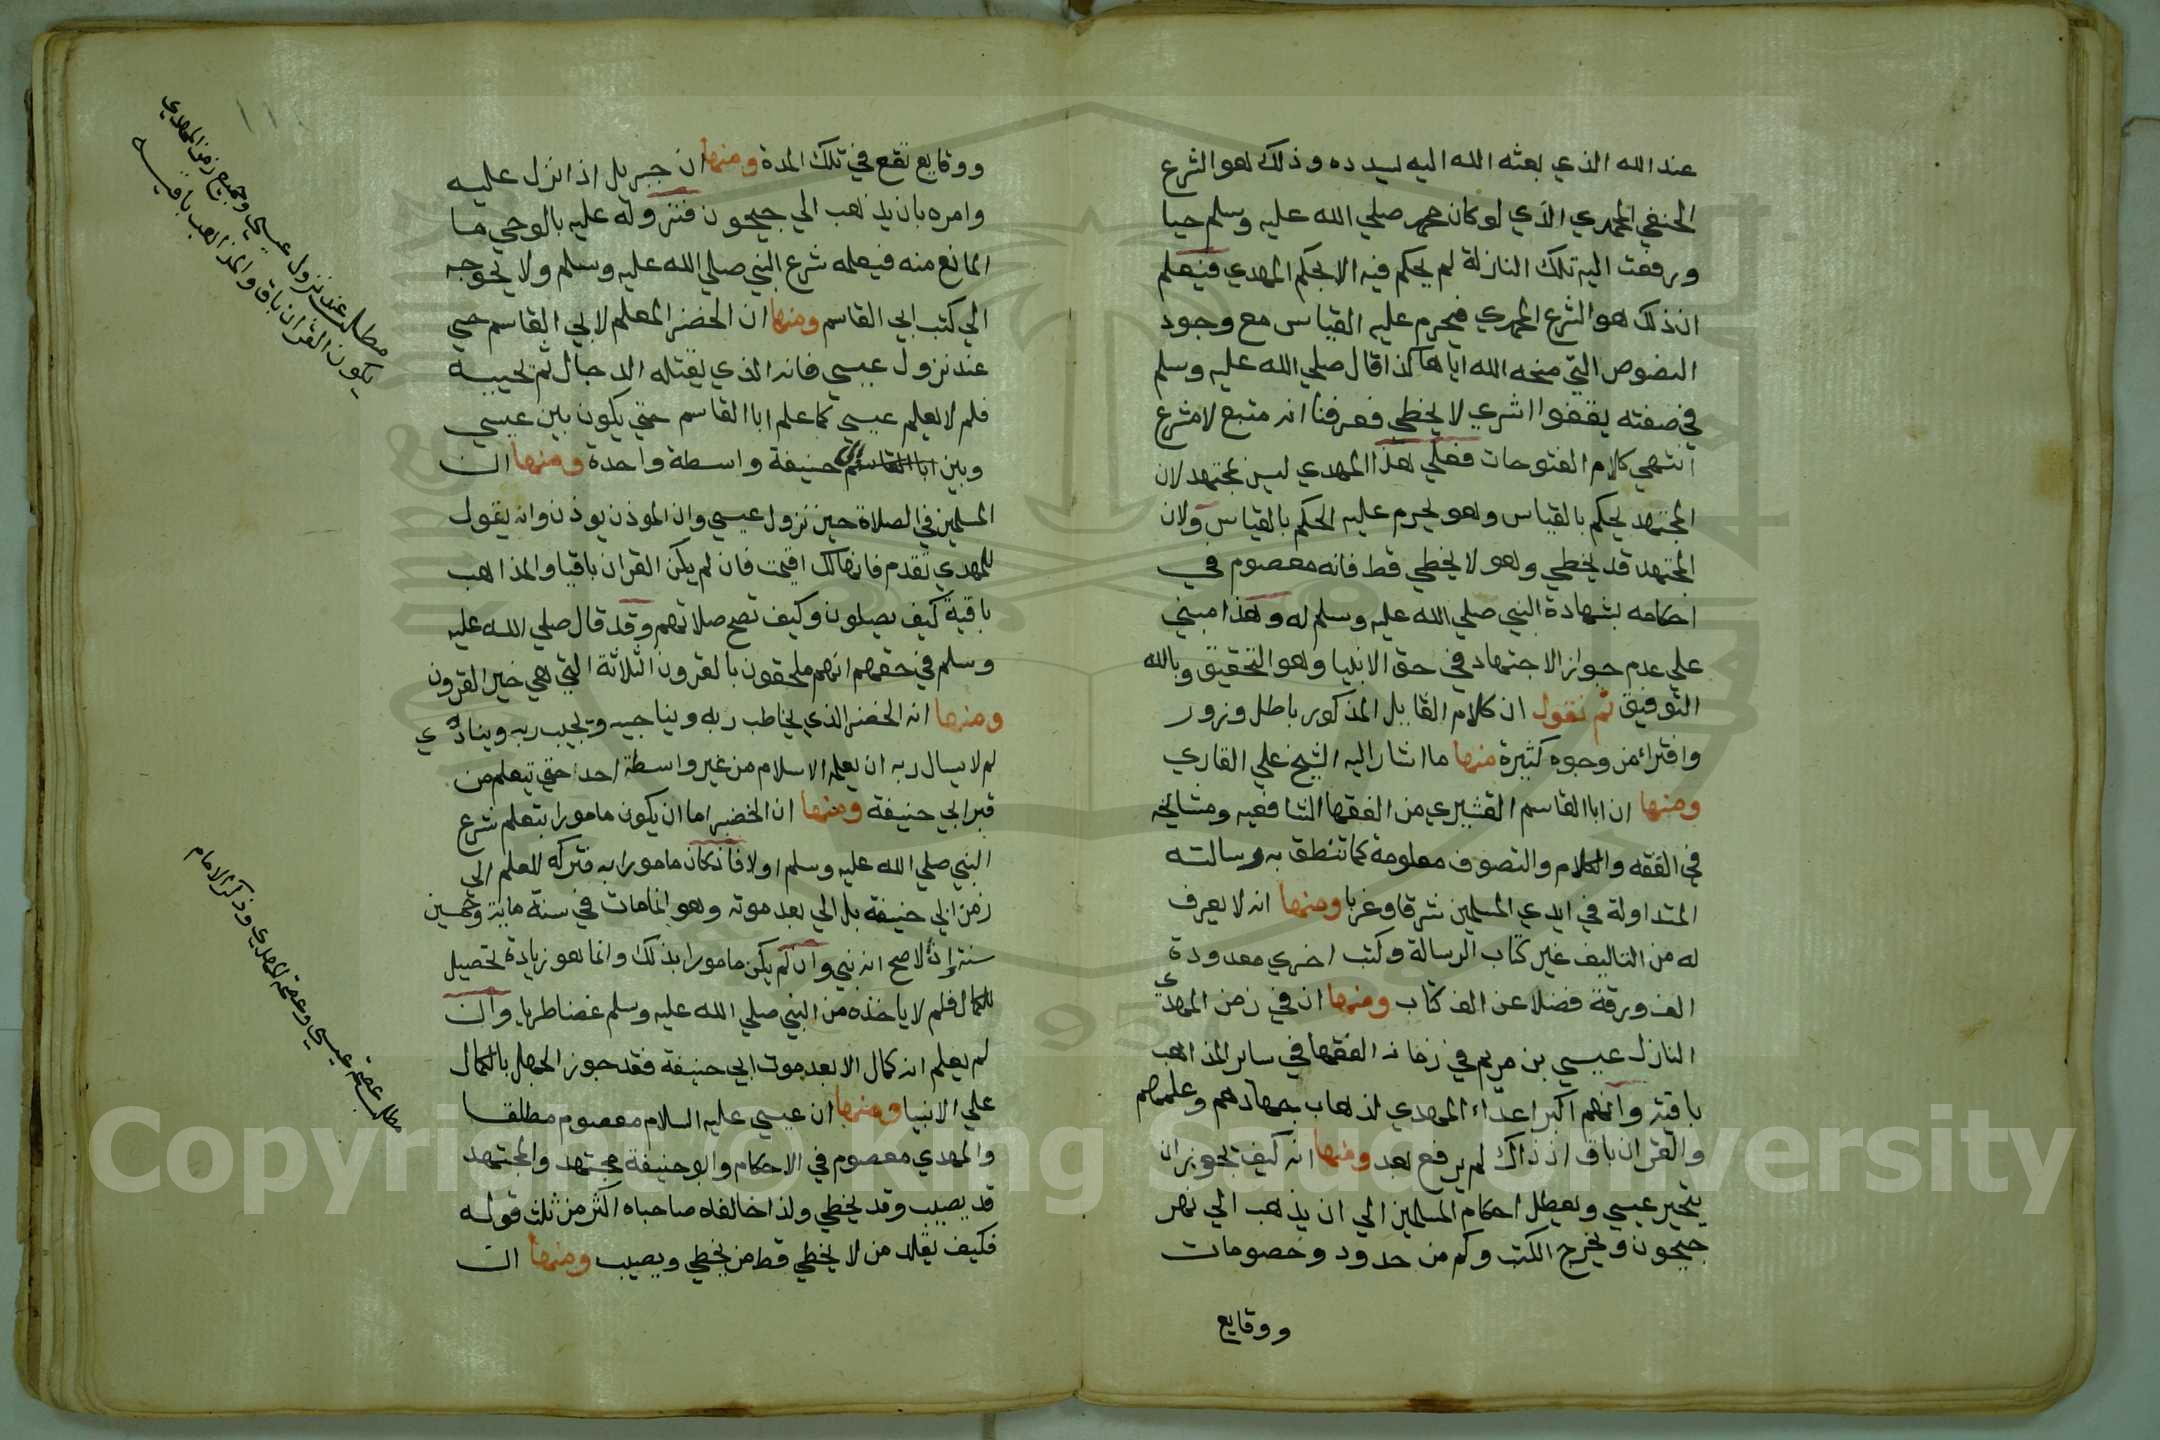 عند الله الذي بعثه الله اليه ليسدده وذلك هو الشرع
الحنفي المحمدي الذي لو كان محمد صلي الله عليه وسلم حيا
ورفعت اليه تلك النازلة لم يحكم فيه الا بحكم المهدي فيعلم
ان ذلك هو الشرع المحمدي فيحرم عليه القياس مع وجود
النصوص التي منحه الله اياها كذا قال صلي الله عليه وسلم
في صفته يقفوا اثري لا يخطي فعرفنا انه متبع لا مشرع
انتهي كلام الفتوحات فعلي هذا المهدي ليس بمجتهد لان
المجتهد يحكم بالقياس وهو يحرم عليه الحكم بالقياس ولان
المجتهد قد يخطي وهو لا يخطي قط فانه معصوم في
احكامه بشهادة النبي صلي الله عليه وسلم له وهذا مبني
علي عدم جواز الاجتهاد في حق الانبيا وهو التحقيق وبالله
التوفيق ثم نقول ان كلام القايل المذكور باطل وزور
وافتراء من وجوه كثيرة منها ما اشار اليه الشيخ علي القاري
ومنها ان ابا القاسم القشيري من الفقها الشافعيه ومشايخه
في الفقه والكلام والتصوف معلومة كما تنطق به رسالته
المتداولة في ايدي المسلمين شرقا وغربا ومنها انه لا يعرف
له من التاليف غير كتاب الرسالة وكتب اخري معدودة
الف ورقة فضلا عن الف كتاب ومنها ان في زمن المهدي
النازل عيسي بن مريم في زمانه الفقها في ساير المذاهب
باقية وانهم اكبر اعداء المهدي لذهاب جهادهم وعلمهم
والقران باق اذ ذاك لم يرفع بعد ومنها انه كيف يجوز ان
يتحير عيسي ويعطل احكام المسلمين الي ان يذهب الي نهر
جيحون ويخرج الكتب وكم من حدود وخصومات
ووقايع
ووقايع تقع في تلك المدة ومنها ان جبريل اذا نزل عليه
وامره بان يذهب الي جيحون فنزوله عليه بالوحي ما
المانع منه فيعلمه شرع النبي صلي الله عليه وسلم ولا يحوجه
الي كتب ابي القاسم ومنها ان الخضر المعلم لابي القاسم حي
عند نزول عيسي فانه الذي يقتله الدجال ثم يحييه
فلم لا يعلم عيسي كما علم ابا القاسم حتي يكون بين عيسي
وبين ابا القاسم ابي حنيفة واسطة واحدة ومنها ان
المسلمين في الصلاة حين نزول عيسي وان الموذن يوذن وانه يقول
للمهدي تقدم فانها لك اقيمت فان لم يكن القران باقيا والمذاهب
باقية كيف يصلون وكيف تصح صلاتهم وقد قال صلي الله عليه
وسلم في حقهم انهم ملحقون بالقرون الثلاثة التي هي خير القرون
ومنها انه الخضر الذي يخاطب ربه ويناجيه ويجيب ربه وينادي
لم لا يسال ربه ان يعلمه الاسلام من غير واسطة احد حتي تيعلم من
قبر ابي حنيفة ومنها ان الخضر اما ان يكون مامورا بتعلم شرع
النبي صلي الله عليه وسلم اولا فان كان مامورا به فتركه للعلم الي
زمن ابي حنيفة بل الي بعد موته وهو انما مات في سنة ماية وخمسين
سنة إن صح انه نبي وان لم يكن مامورا بذلك وانما هو زيادة تحصيل
للكمال فلم لا ياخذه من النبي صلي الله عليه وسلم غضا طريا وان
لم يعلم انه كمال الا بعد موت ابي حنيفة فقد جوز الجهل بالكمال
علي الانبيا ومنها ان عيسي عليه السلام معصوم مطلقا
والمهدي معصوم في الاحكام وابو حنيفة مجتهد والمجتهد
قد يصيب وقد يخطي ولذا خالفاه صاحباه اكثر من ثلث قوله
فكيف يقلد من لا يخطي قط من يخطي ويصيب ومنها ان
مطلب عند نزول عيسي وجميع زمن المهدي
يكون القران باق والمذاهب باقيه
مطلب عصمة عيسي وعصمة المهدي وذكر الامام
١١
Copyright © King Saud University